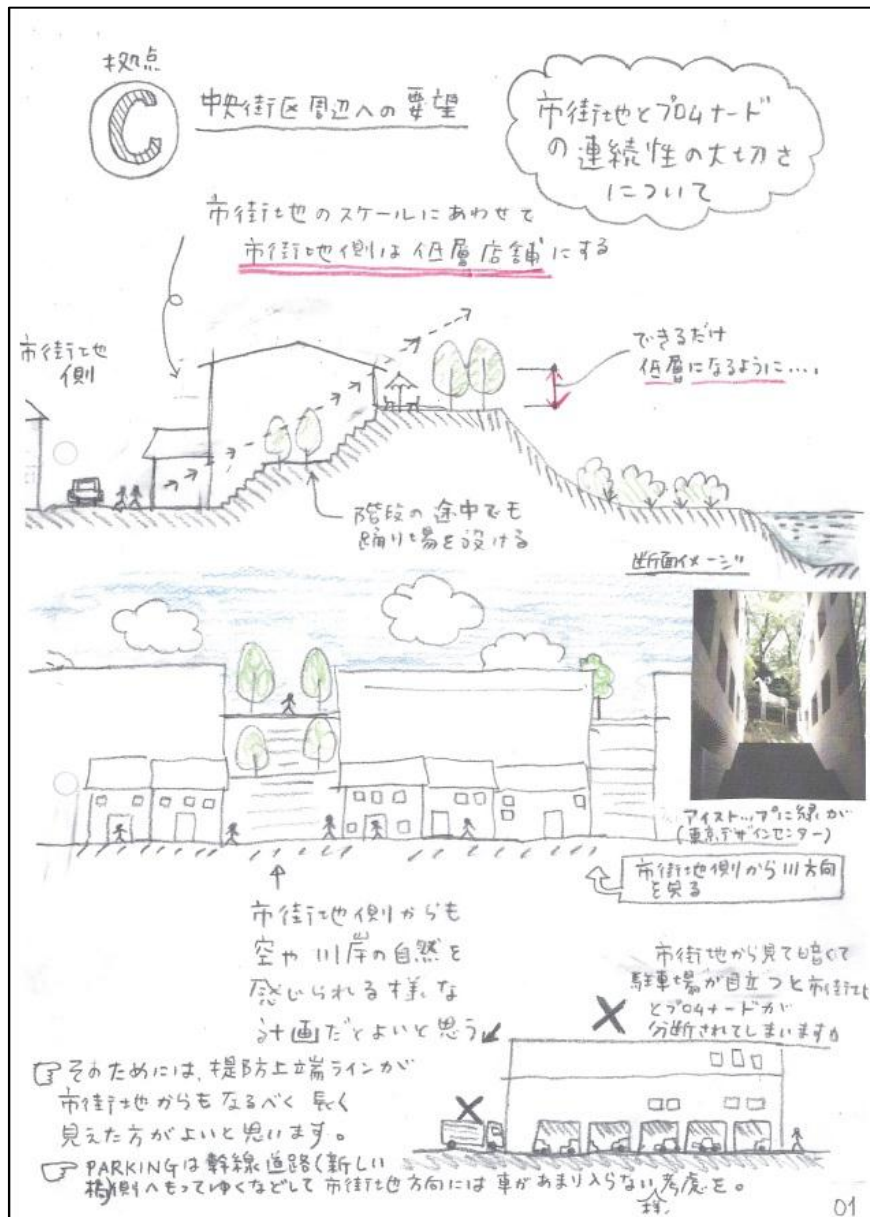 拠点
C
中央街区周辺への要望
市街地とプロムナード
の連続性の大切さ
について
市街地のスケールにあわせて
市街地側は低層店舗にする
市街地
側
できるだけ
低層になるように....
階段の途中でも
踊り場を設ける
断面イメージ
アイストップに緑が
(東京デザインセンター)
市街地側から川方向
を見る
市街地側からも
空や川岸の自然を
感じられる様な
計画だとよいと思う
市街地から見て暗くて
駐車場が目立つと市街地
とプロムナードが
分断されてしまいますか
そのためには、堤防上端ラインが
市街地からもなるべく長く
見えた方がよいと思います。
PARKINGは幹線道路(新しい
橋)側へもってゆくなどして市街地方向には車があまり入らない様考慮を。
01